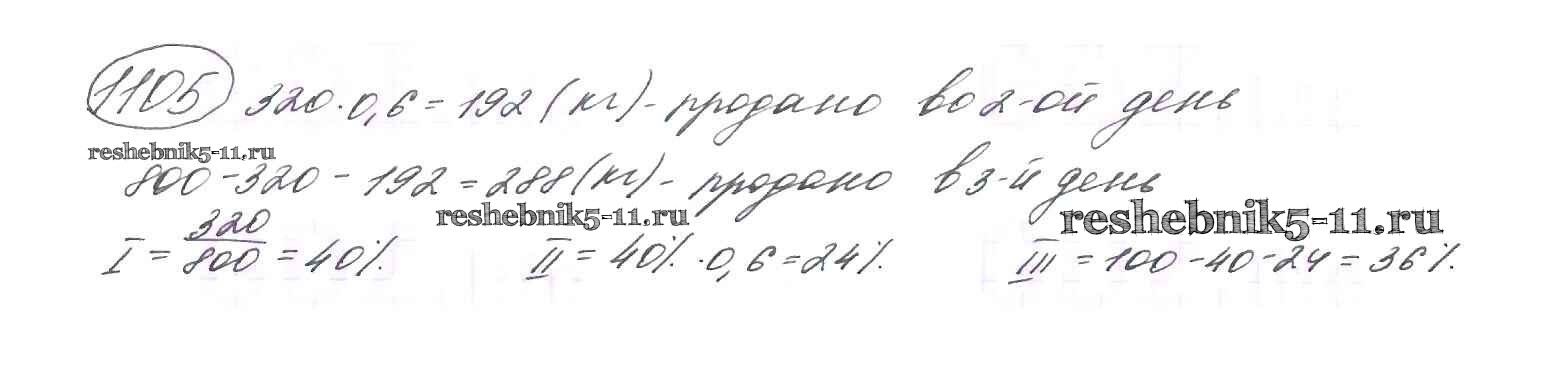 1105 320·0,6=192(кг)- продано во 2-ой день
reshebnik5-11.ru
800-320-192=288(кг)- продано в 3-й день
reshebnik5-11.ru reshebnik5-11.ru
I = 320/800 = 40% II = 40%·0,6=24% III = 100-40-24=36%.